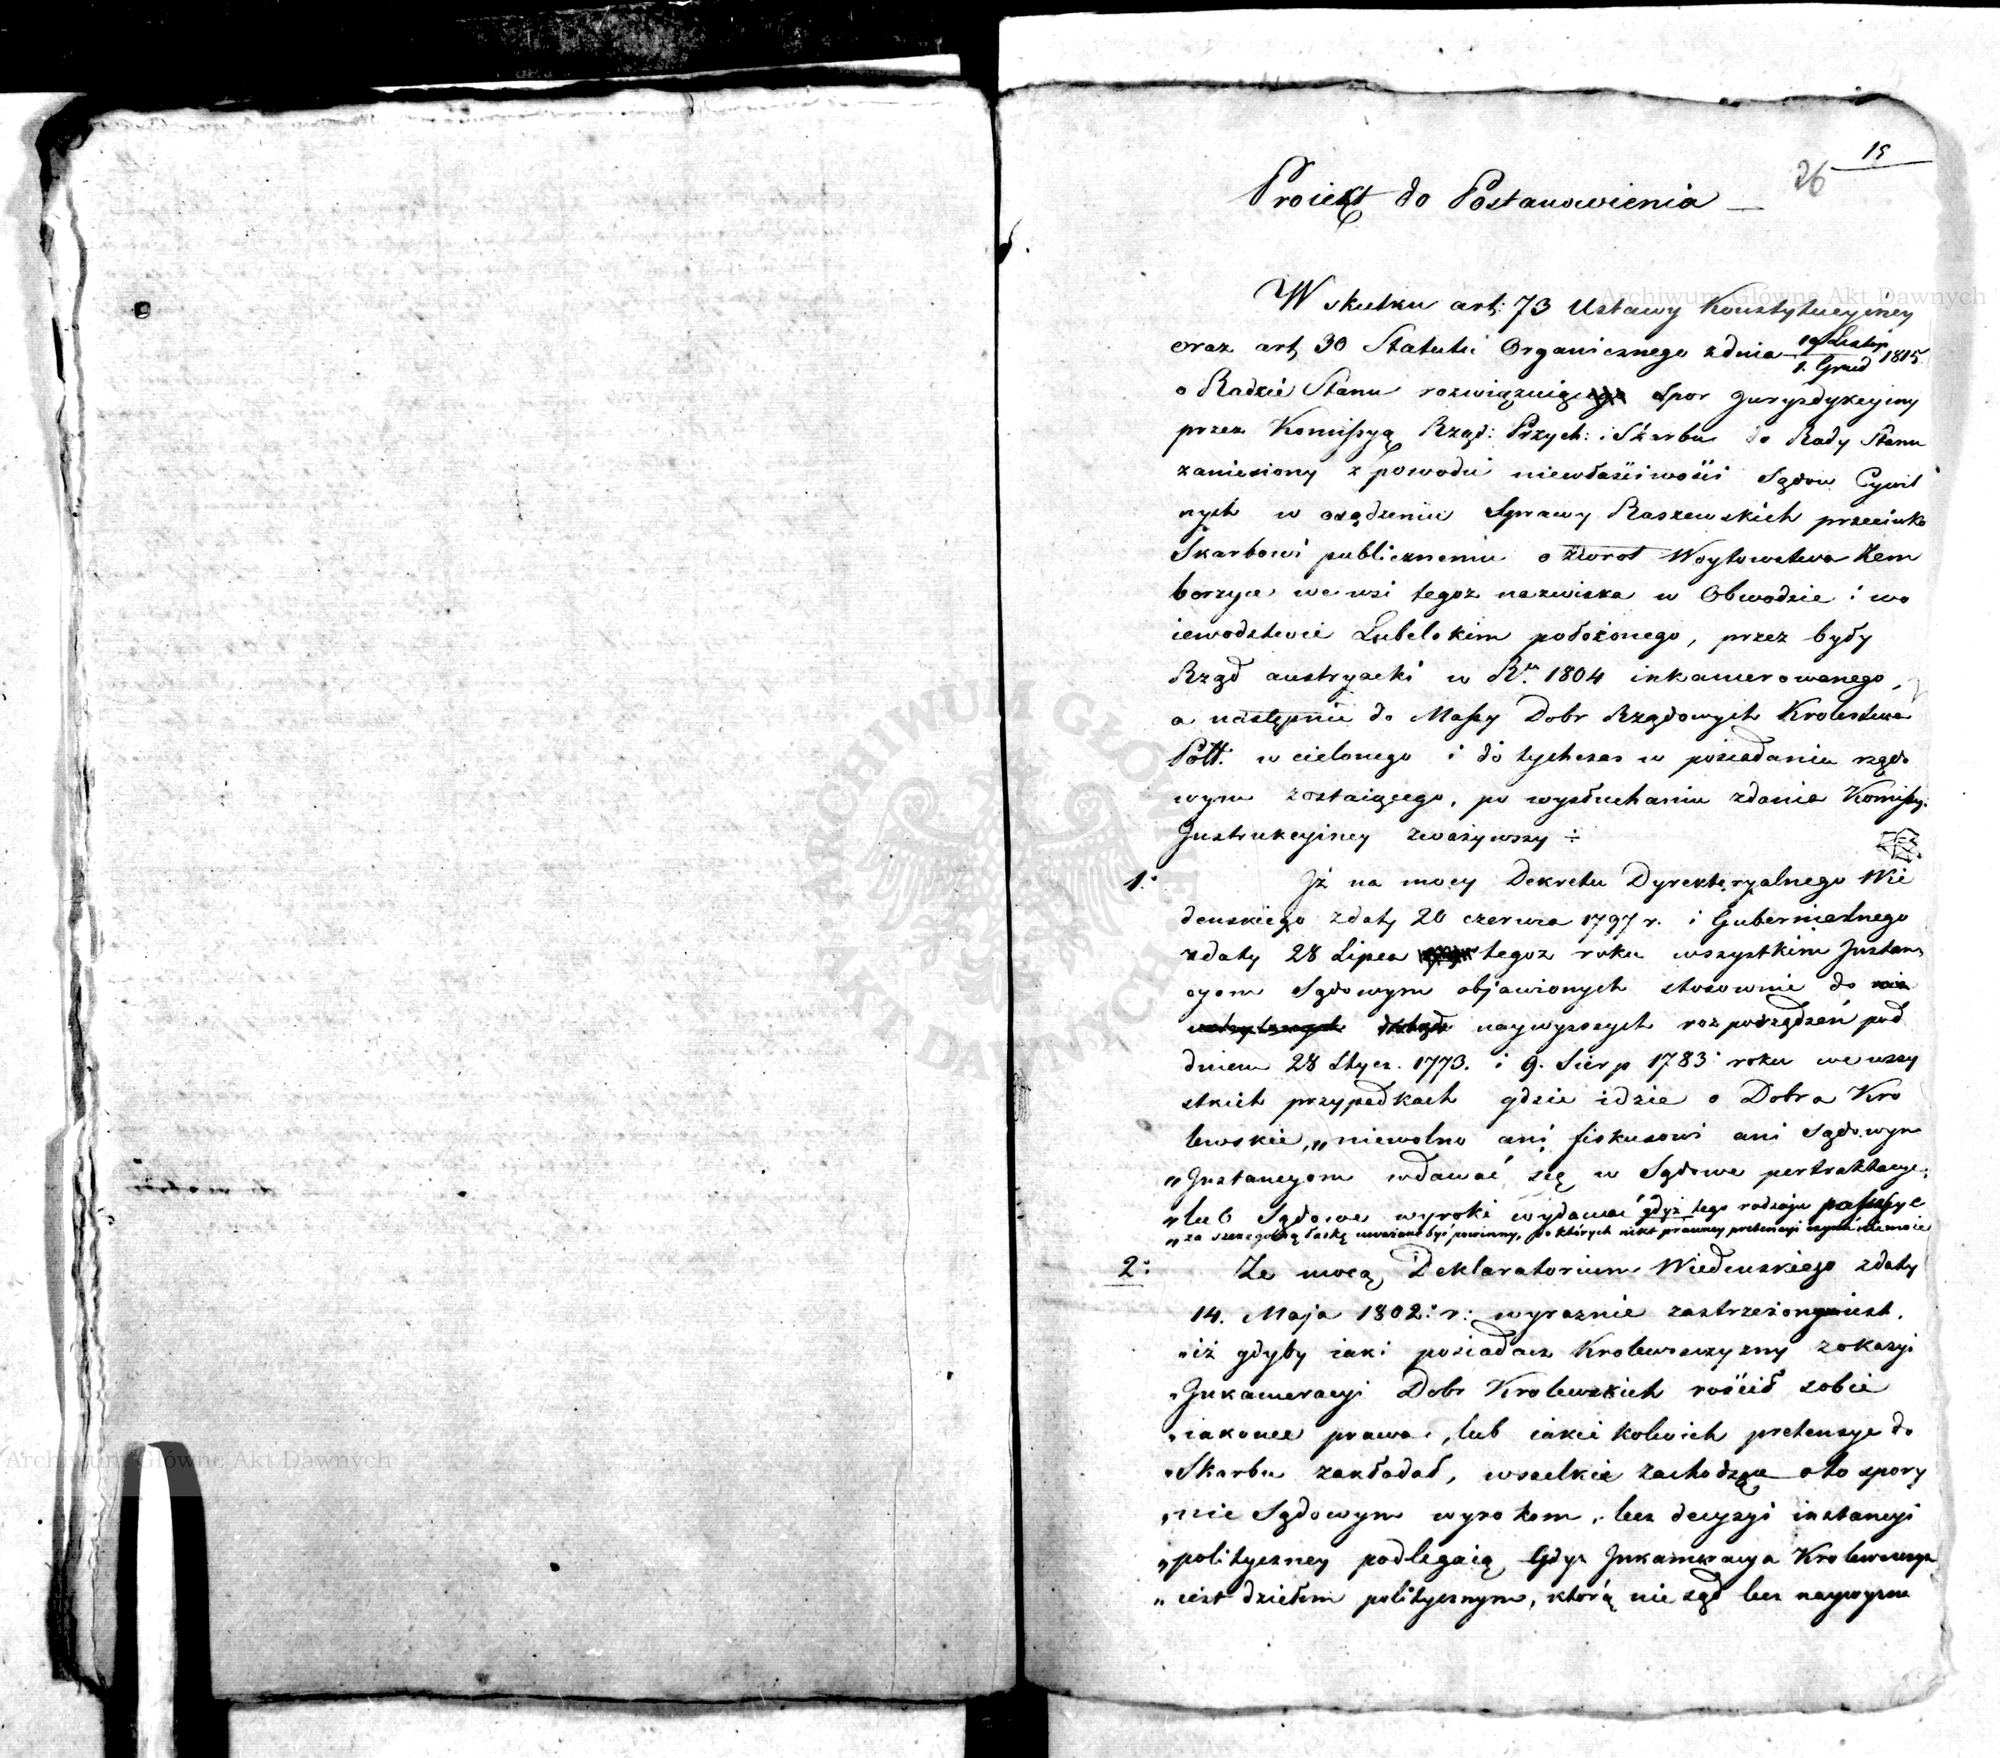 15
26
Proiekt do Postanowienia —
W skutku art: 73 Ustawy Konstytucyiney
oraz art 30 Statutu Organicznego z dnia 19 Listop / 1. Grud 1815.
o Radzie Stanu rozwiązuiąc Spor Jurysdykcyiny
przez Kommissyą Rząd: Przych: i Skarbu do Rady Stanu
zaniesiony z powodu niewłaściwości Sądow Cywil
nych w osądzeniu Sprawy Raszewskich przeciwko
Skarbowi publicznemu o zwrot Woytowstwa Zem
borzyce we wsi tegoż nazwiska w Obwodzie i wo
iewodztwie Lubelskim położonego, przez były
Rząd austryacki w Ru. 1804 inkamerowanego,
a następnie do Massy Dobr Rządowych Krolestwa
Poll: wcielonego i do tychczas w posiadaniu rządo
wym zostaiącego, po wysłuchaniu zdania Komissy:
Instrukcyiney zważywszy ÷
1.° Iż na mocy Dekretu Dyrektoryalnego Wie
denskiego z daty 20 czerwca 1797 r. i Gubernialnego
z daty 28 Lipca tegoż roku wszystkim Instan
cyom Sądowym objawionych stosownie do
naywyższych rozporządzeń pod
dniem 28 Stycz. 1773. i 9. Sierp 1783 roku we wszy
stkich przypadkach gdzie idzie o Dobra Kro
lewskie, „niewolno ani fiskusowi ani Sądowym
„Instancyom wdawać się w Sądowe pertraktacye,
„lub Sądowe wyroki wydawać gdyż tego rodzaju
„za szczegolną łaskę uważane być powinny, do których nikt prawney pretensyi czynić niemoże
2.° Ze mocą Deklaratorium Wiedenskiego z daty
14. Maja 1802: r: wyraznie zastrzeżono iest,
„iż gdyby iaki posiadacz Krolewszczyzny z okazyi
„Inkameracyi Dobr Krolewskich rościł sobie
„iakowe prawa, lub iakie kolwiek pretensye do
„Skarbu zakładał, wszelkie zachodzące o to spory
„nie Sądowym wyrokom, lecz decyzyi instancyi
„polityczney podlegaią Gdyż Inkameracya Krolewszczyzn
„iest dziełem politycznym, którą nie sąd lecz naywyższe
Archiwum Główne Akt Dawnych
Archiwum Główne Akt Dawnych
ARCHIWUM GŁÓWNE AKT DAWNYCH